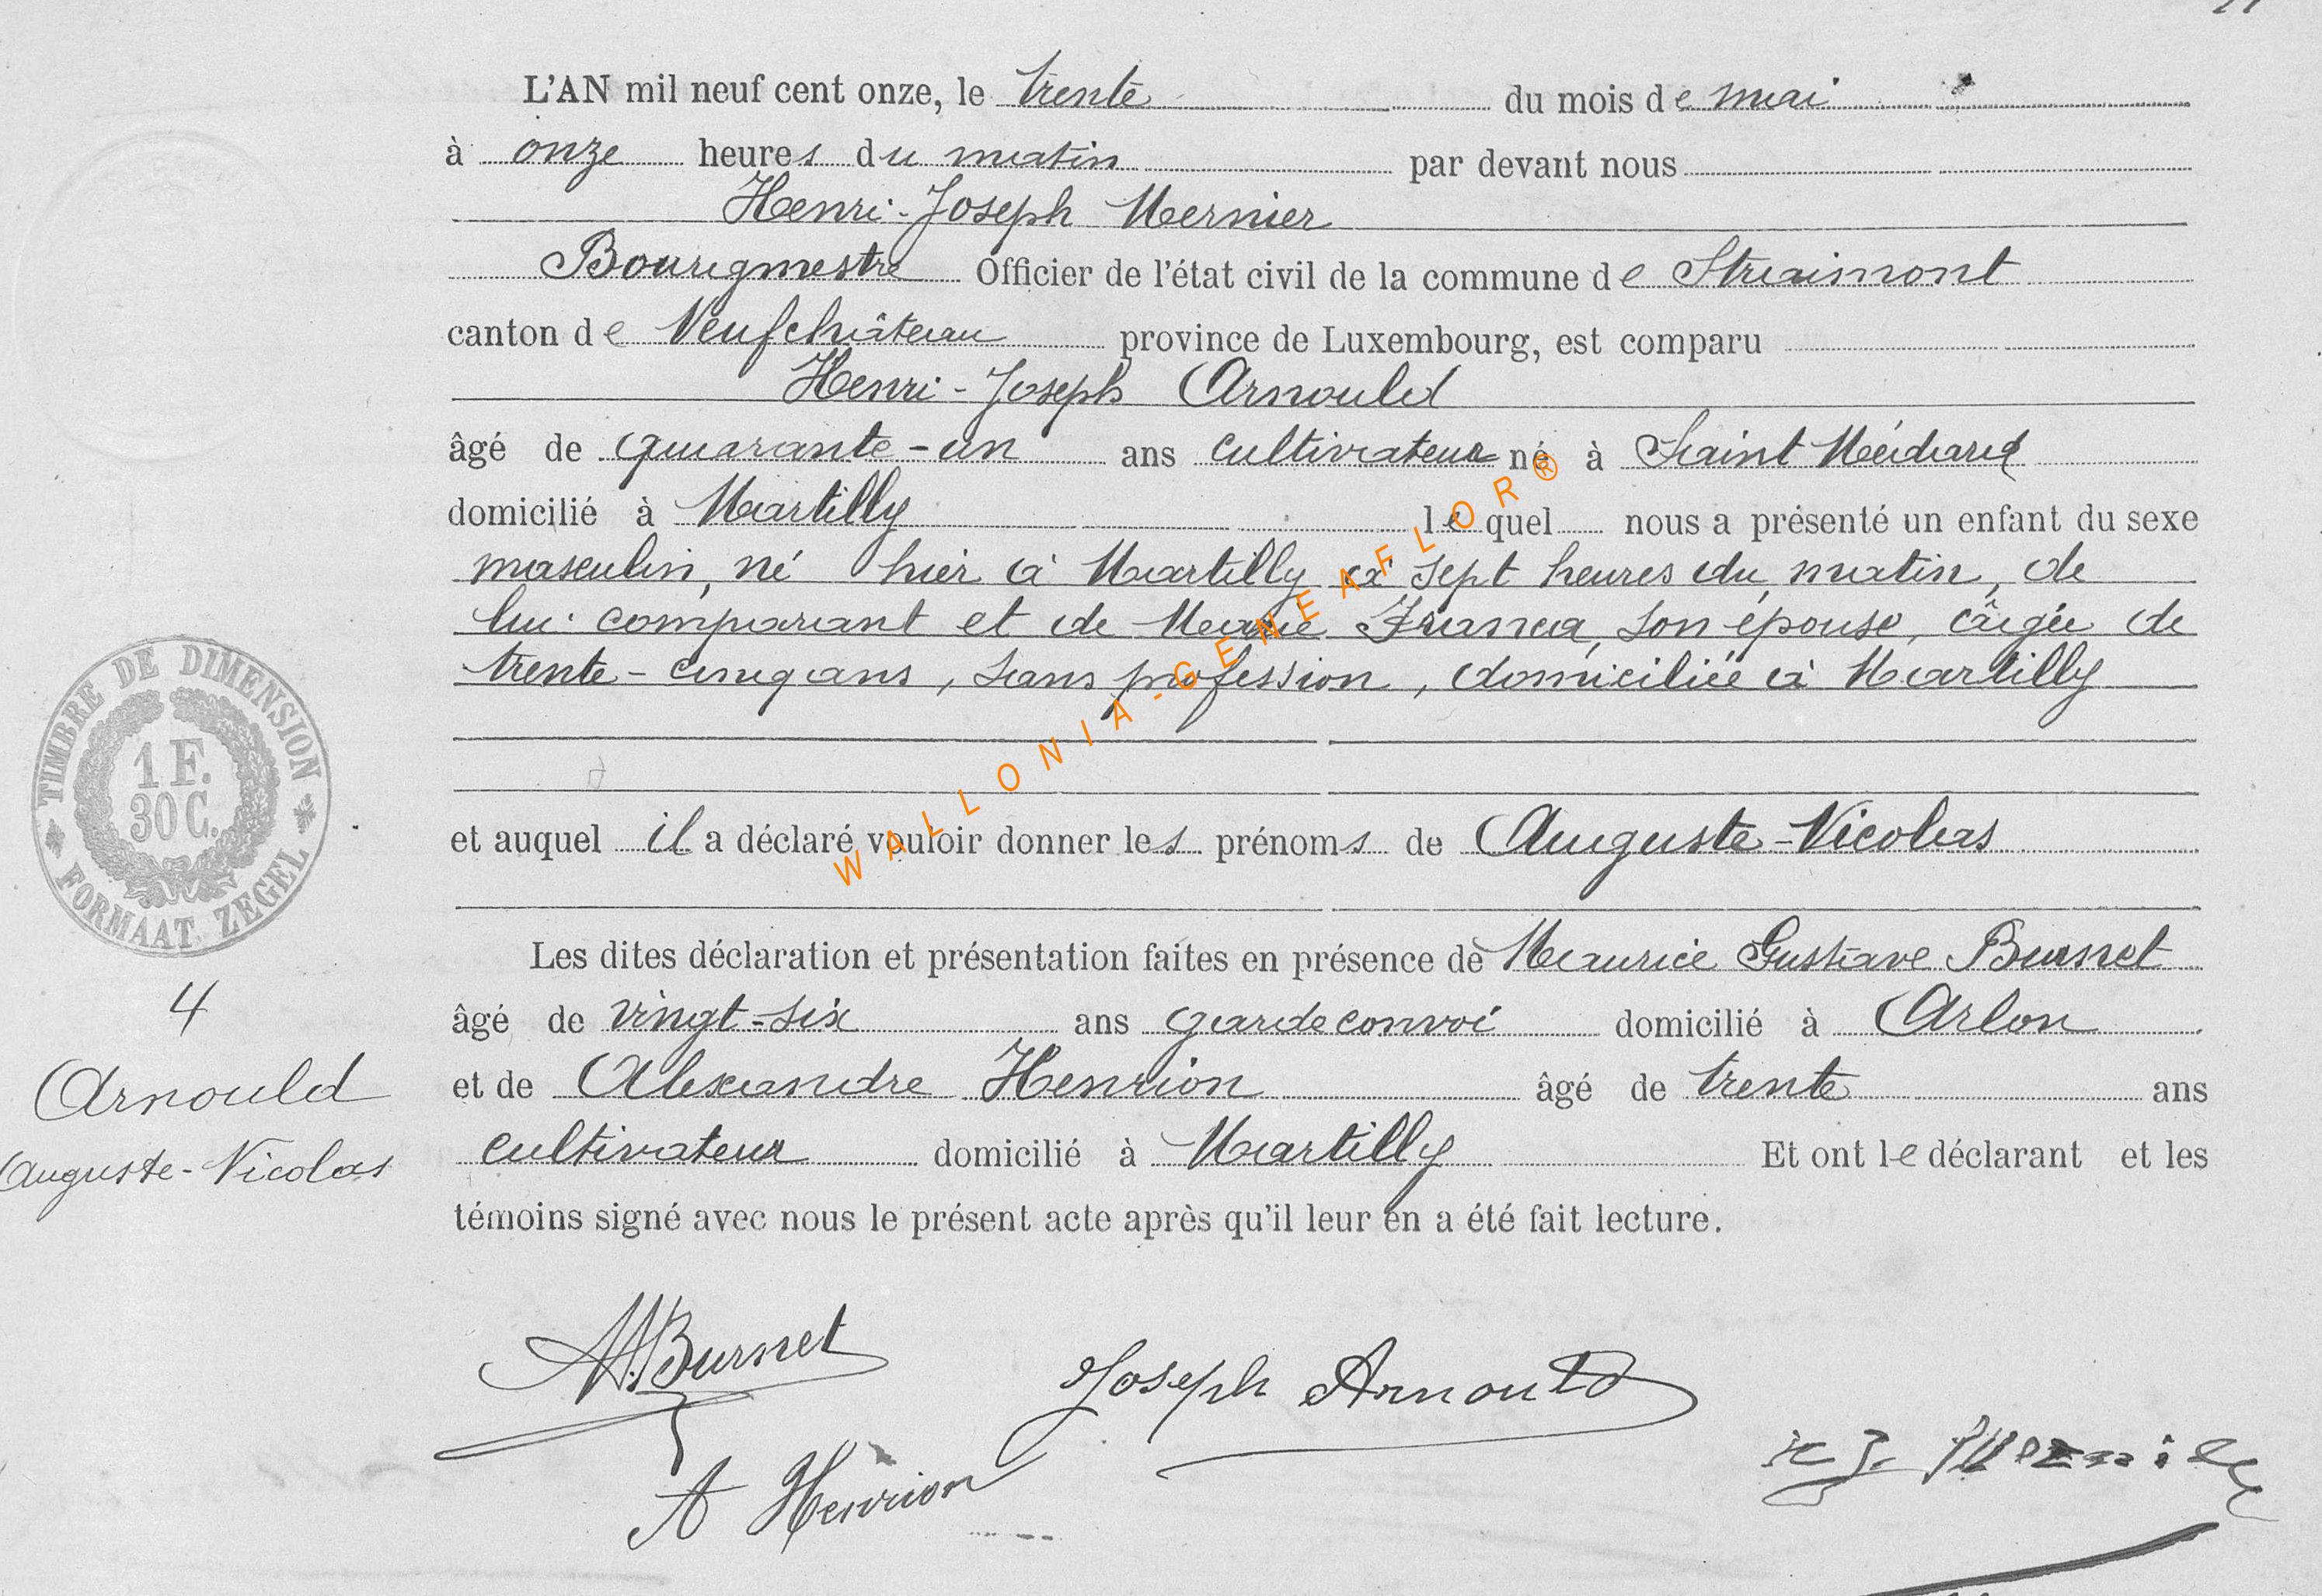 L'AN mil neuf cent onze, le trente du mois de mai
à onze heures du matin par devant nous
Henri-Joseph Mernier
Bourgmestre Officier de l'état civil de la commune de Straimont
canton de Neufchâteau province de Luxembourg, est comparu
Henri-Joseph Arnould
âgé de quarante-un ans cultivateur né à Saint Médard
domicilié à Martilly lequel nous a présenté un enfant du sexe
masculin, né hier à Martilly à sept heures du matin, de
lui comparant et de Marie, son épouse, âgée de
trente-cinq ans, sans profession, domiciliée à Martilly
et auquel il a déclaré vouloir donner les prénoms de Auguste-Nicolas
Les dites déclaration et présentation faites en présence de Maurice Gustave Burnet
âgé de vingt-six ans garde convoi domicilié à Arlon
et de Alexandre Henrion âgé de trente ans
cultivateur domicilié à Martilly Et ont le déclarant et les
témoins signé avec nous le présent acte après qu'il leur en a été fait lecture.
TIMBRE DE DIMENSION
1 F.
30 C.
FORMAAT ZEGEL
4
Arnould
Auguste-Nicolas
M. Burnet
Joseph Arnould
A Henrion
H J. Mernier
WALLONIA-GENEAFLOR®